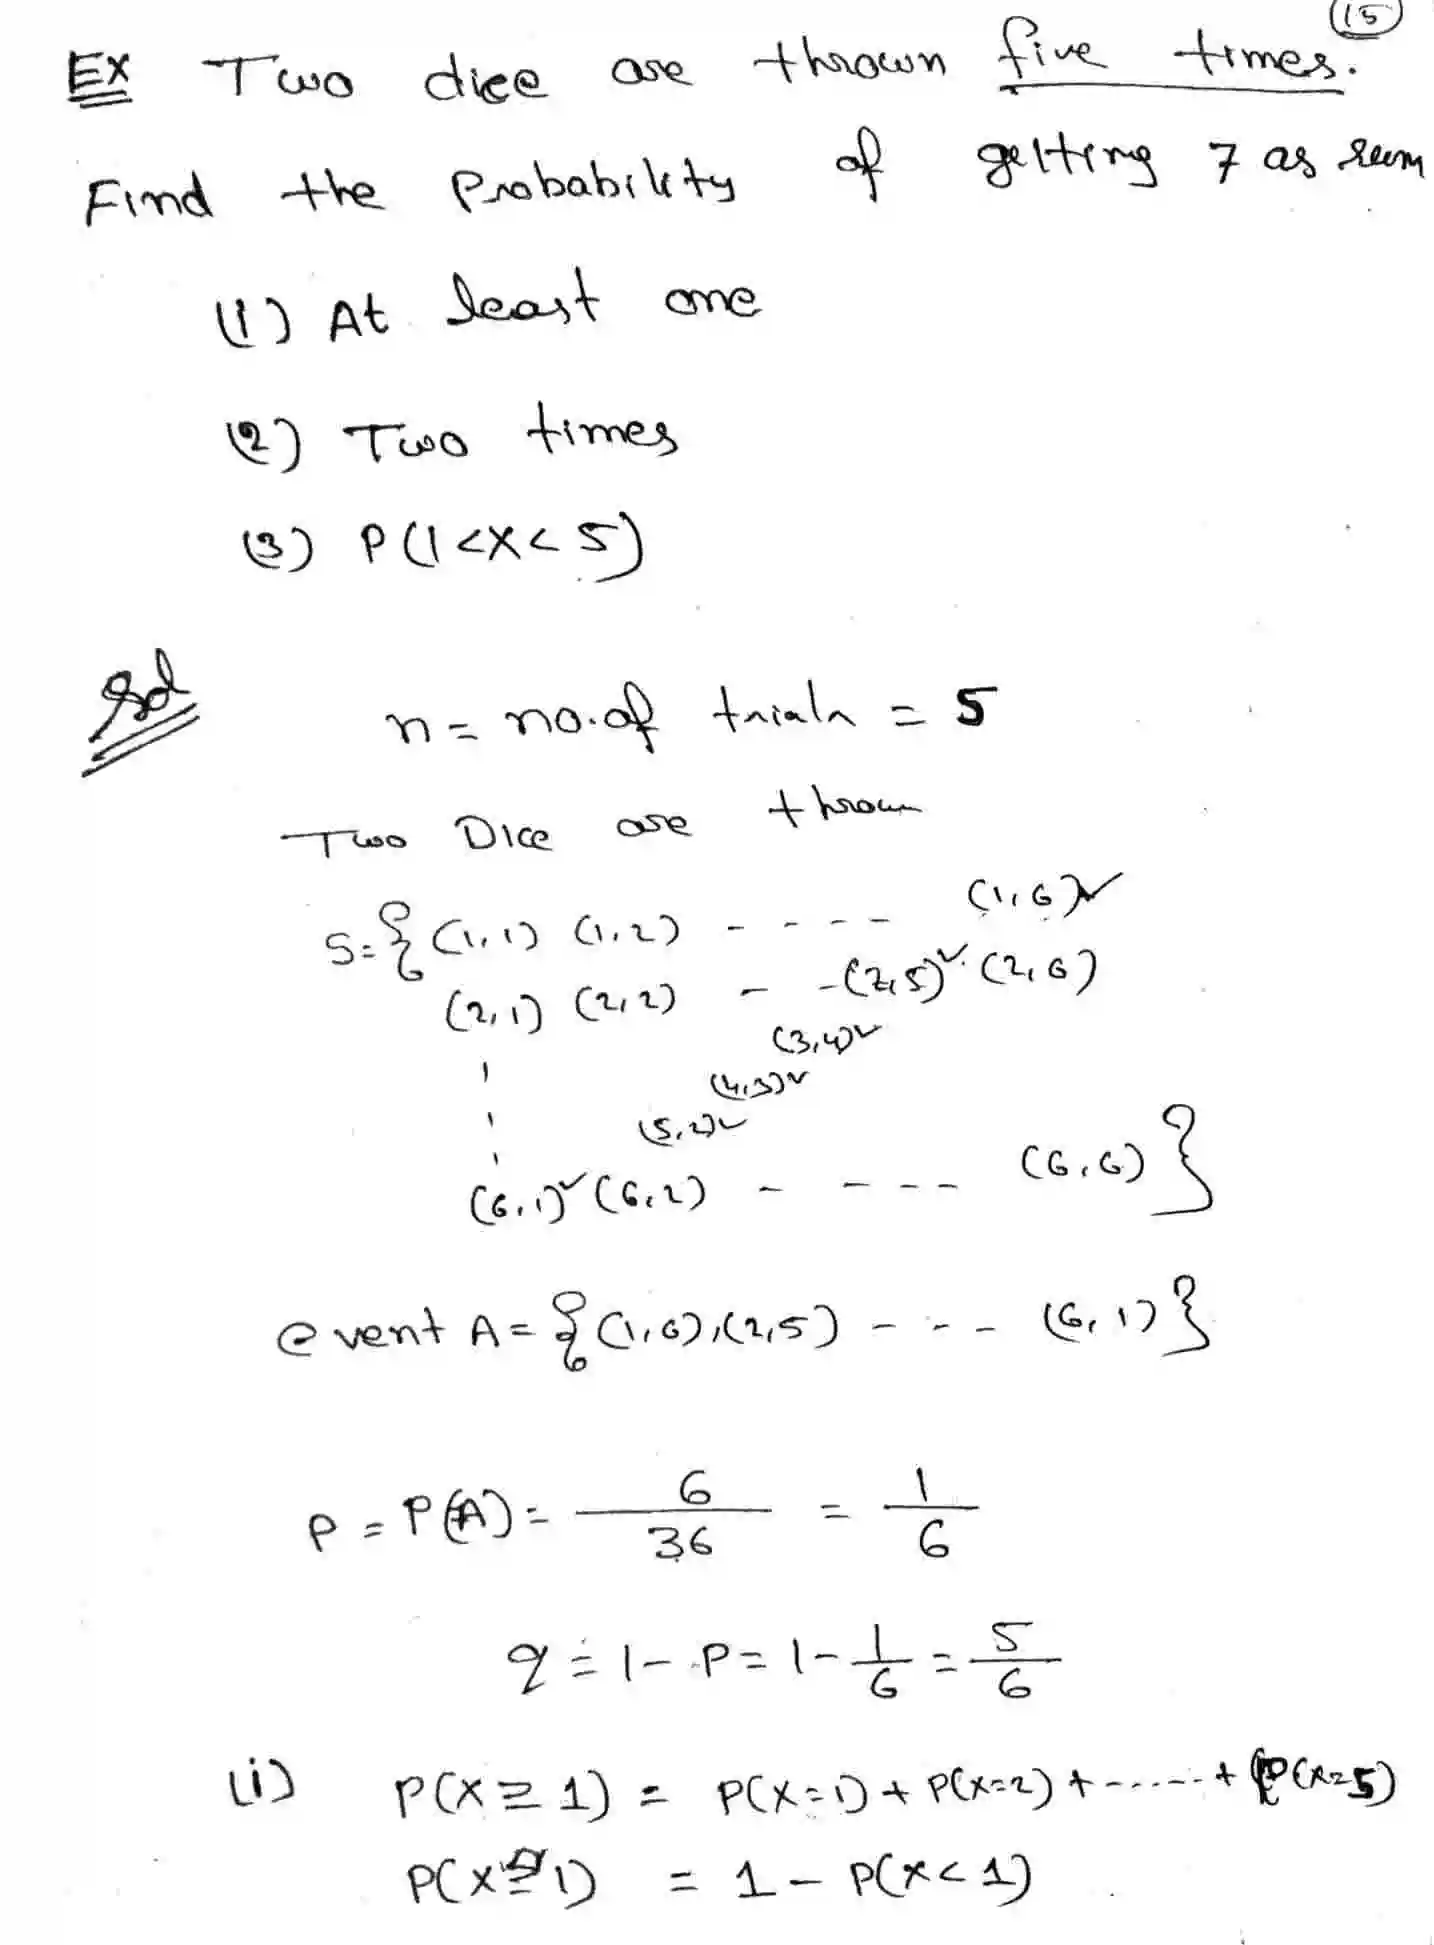 (15)
Ex Two dice are thrown five times.
Find the Probability of getting 7 as sum
(1) At least one
(2) Two times
(3) P(1<X<5)
Sol
n = no. of trials = 5
Two Dice are thrown
S={(1,1) (1,2) - - - - (1,6)✓
(2,1) (2,2) - - (2,5)✓ (2,6)
(3,4)✓
(4,3)✓
(5,2)✓
(6,1)✓ (6,2) - - - - (6,6)}
event A={(1,6),(2,5) - - - (6,1)}
P = P(A) = 6/36 = 1/6
q = 1 - P = 1 - 1/6 = 5/6
(i) P(X ≥ 1) = P(X=1) + P(X=2) + ...... + P(X=5)
P(X ≥ 1) = 1 - P(X < 1)